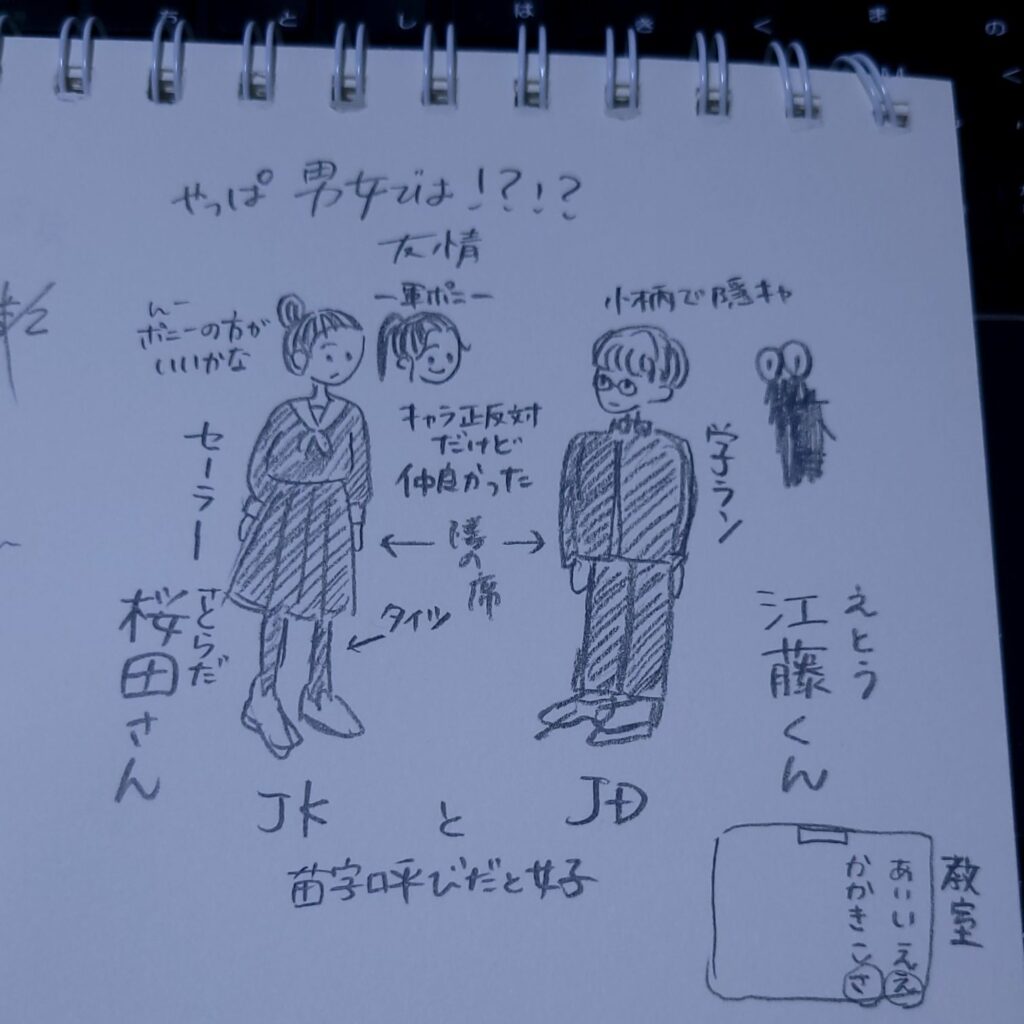 おとしはきくまの
やっぱ 男女では!?!?
友情
一軍ポニー
んー
ポニーの方が
いいかな
小柄で陰キャ
セーラー
キャラ正反対
だけど
仲良かった
学ラン
← 隣の席 →
タイツ
桜田さん
さくらだ
江藤くん
えとう
JK と JD
苗字呼びだと好
教室
あいいええ
かかきこさ